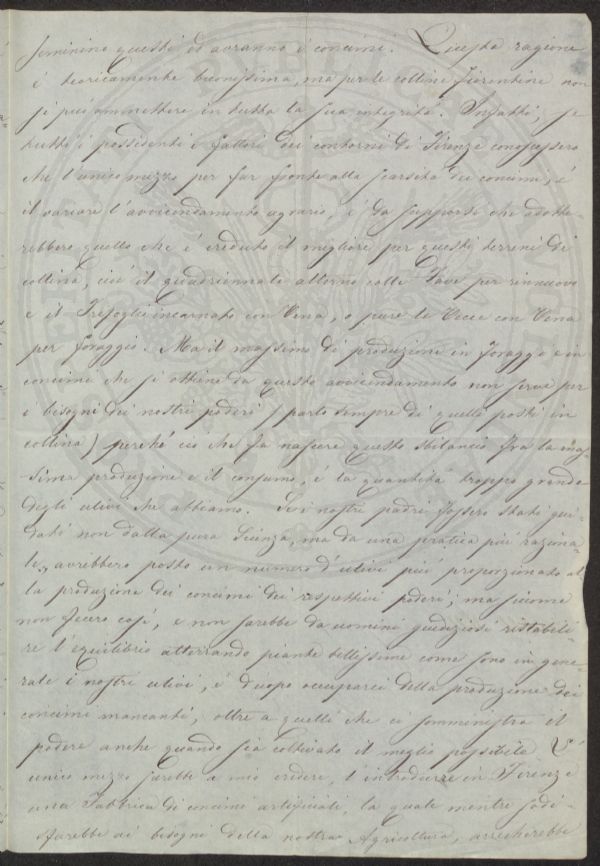 seminino questi ed avranno i concimi. Questa ragione
é teoricamente buonissima, ma per le colline fiorentine non
si può ammettere in tutta la sua integrità. Infatti, se
tutti i possidenti e fattori dei contorni di Firenze conoscessero
che l'unico mezzo per far fronte alla scarsità dei concimi, é
il variare l'avvicendamento agrario, é da supporsi che adotte-
rebbero quello che é creduto il migliore per questi terreni di
collina, cioé il quadriennale alterno colle Fave per rinnuovo
e il Trifoglio incarnato con Vena, o pure le Vecce con Vena
per foraggio. Ma il massimo di produzione in foraggi e in
concime che si ottiene da questo avvicendamento non serve per
i bisogni dei nostri poderi (parlo sempre di quelli posti in
collina) perché ciò che fa nascere questo sbilancio fra la mas-
sima produzione e il consumo, é la quantità troppo grande
degli ulivi che abbiamo. Se i nostri padri fossero stati gui-
dati non dalla pura Scienza, ma da una pratica più raziona-
le, avrebbero posto un numero d'ulivi più proporzionato al-
la produzione dei concimi dei respettivi poderi; ma siccome
non fecero così, e non sarebbe da uomini giudiziosi ristabili-
re l'equilibrio atterrando piante bellissime come sono in gene-
rale i nostri ulivi, é d'uopo occuparci della produzione dei
concimi mancanti, oltre a quelli che ci somministra il
podere anche quando sia coltivato il meglio possibile. L'
unico mezzo sarebbe a mio credere, l'introdurre in Firenze
una Fabbrica di concimi artificiali, la quale mentre sodi-
sfarebbe ai bisogni della nostra Agricoltura, arrecherebbe